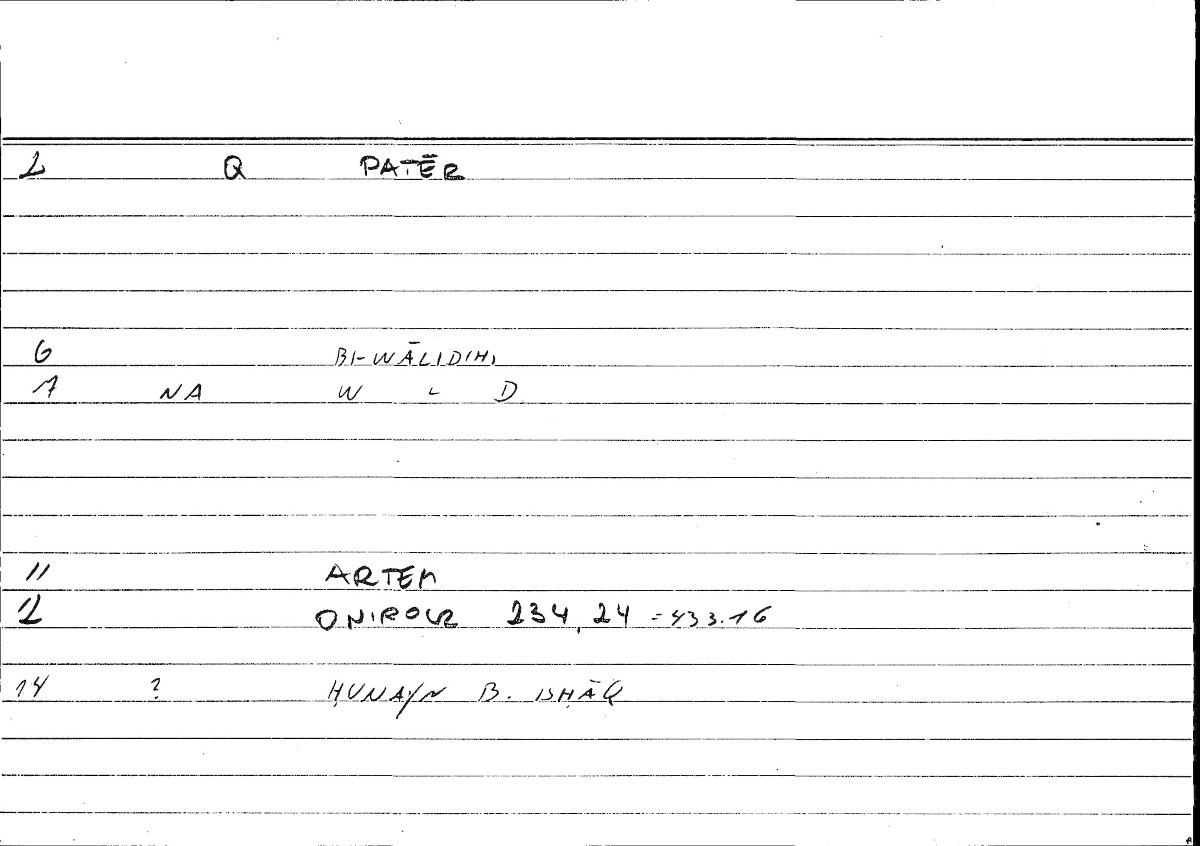 2 Q PATĒR
6 BI-WĀLIDIHI
7 NA W L D
11 ARTEM
12 ONIROCR 234,24 = 433.16
14 ? ḤUNAYN B. ISḤĀQ